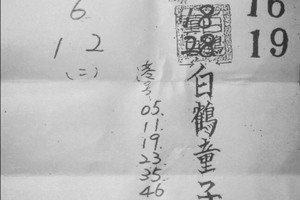 6
1 2
(二)
18
28
16
19
05.
11.
19.
23.
35.
46
白鶴童子